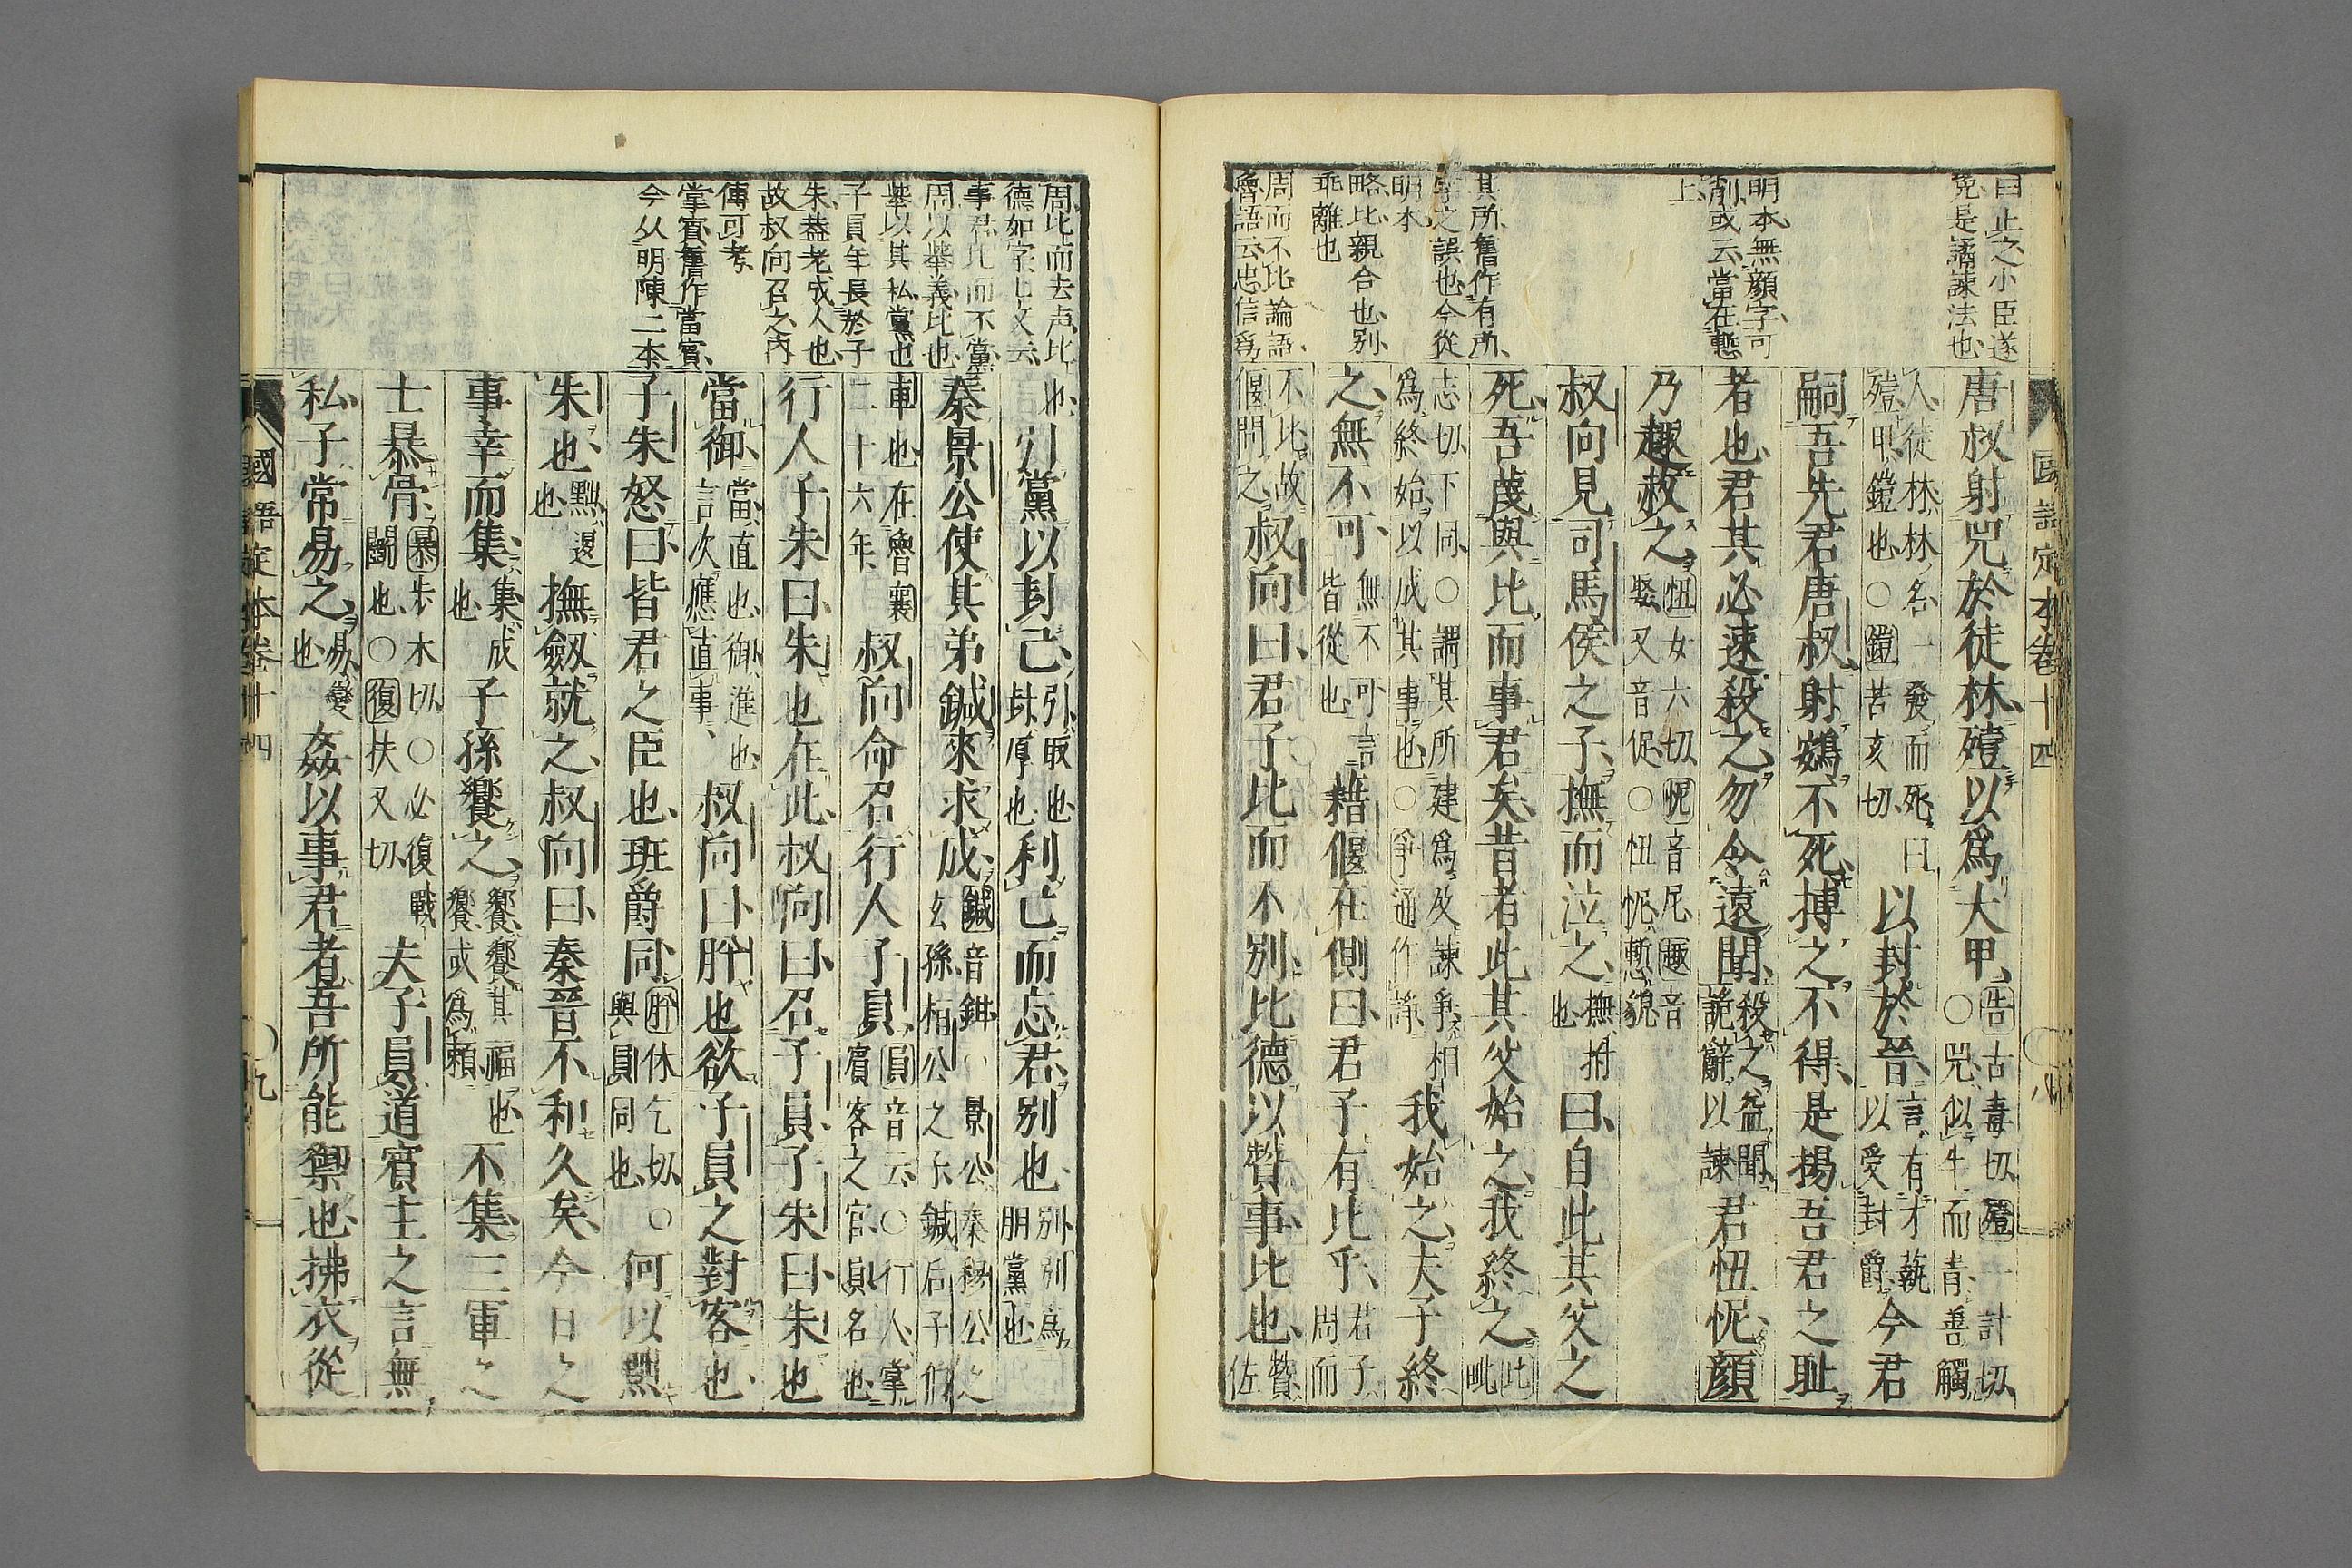 曰止之小臣遂
免是譎諫法也
明本無顔字可
削或云當在慙
上
其所舊作有所
字之誤也今從
明本
略比親合也别
乖離也
周而不比論語
魯語云忠信爲
國語定本卷十四 八
唐叔射兕於徒林殪以爲大甲告古毒切殪一計切○兕似牛而青善觸
人徒林林名一發而死曰殪甲鎧也○鎧苦亥切以封於晉言有才藝以受封爵今君
嗣吾先君唐叔射鴳不死搏之不得是揚吾君之恥
者也君其必速殺之勿令遠聞殺之益聞詭辭以諫君忸怩顔
乃趣赦之忸女六切怩音尼趣音娶又音促○忸怩慙貌
叔向見司馬侯之子撫而泣之撫拊也曰自此其父之
死吾蔑與比而事君矣昔者此其父始之我終之比毗
志切下同○謂其所建爲及諫爭相爲終始以成其事也○爭通作諍我始之夫子終
之無不可無不可言皆從也藉偃在側曰君子有比乎君子周而
不比故偃問之叔向曰君子比而不别比德以贊事比也贊佐
周比而去声比
德如字上文云
事君比而不黨
周以舉義比也
舉以其私黨也
子員年長於子
朱蓋老成人也
故叔向召之内
傳可考
掌賓舊作當賓
今从明陳二本
也引黨以封己引取也封厚也利己而忘君别也别别爲朋黨也
秦景公使其弟鍼來求成鍼音鉗○景公秦穆公之玄孫桓公之子鍼后子伯
車也在魯襄二十六年叔向命召行人子員員音云○行人掌賓客之官員名也
行人子朱曰朱也在此叔向曰召子員子朱曰朱也
當御當直也御進也言次應直事叔向曰肸也欲子員之對客也
子朱怒曰皆君之臣也班爵同肸休乞切○與員同也何以黜
朱也黜退也撫劔就之叔向曰秦晉不和久矣今日之
事幸而集集成也子孫饗之饗饗其福也饗或爲賴不集三軍之
士暴骨暴步木切○必復戰鬬也○復扶又切夫子員道賓主之言無
私子常易之易變也姦以事君者吾所能禦也拂衣從
國語定本卷十四 九